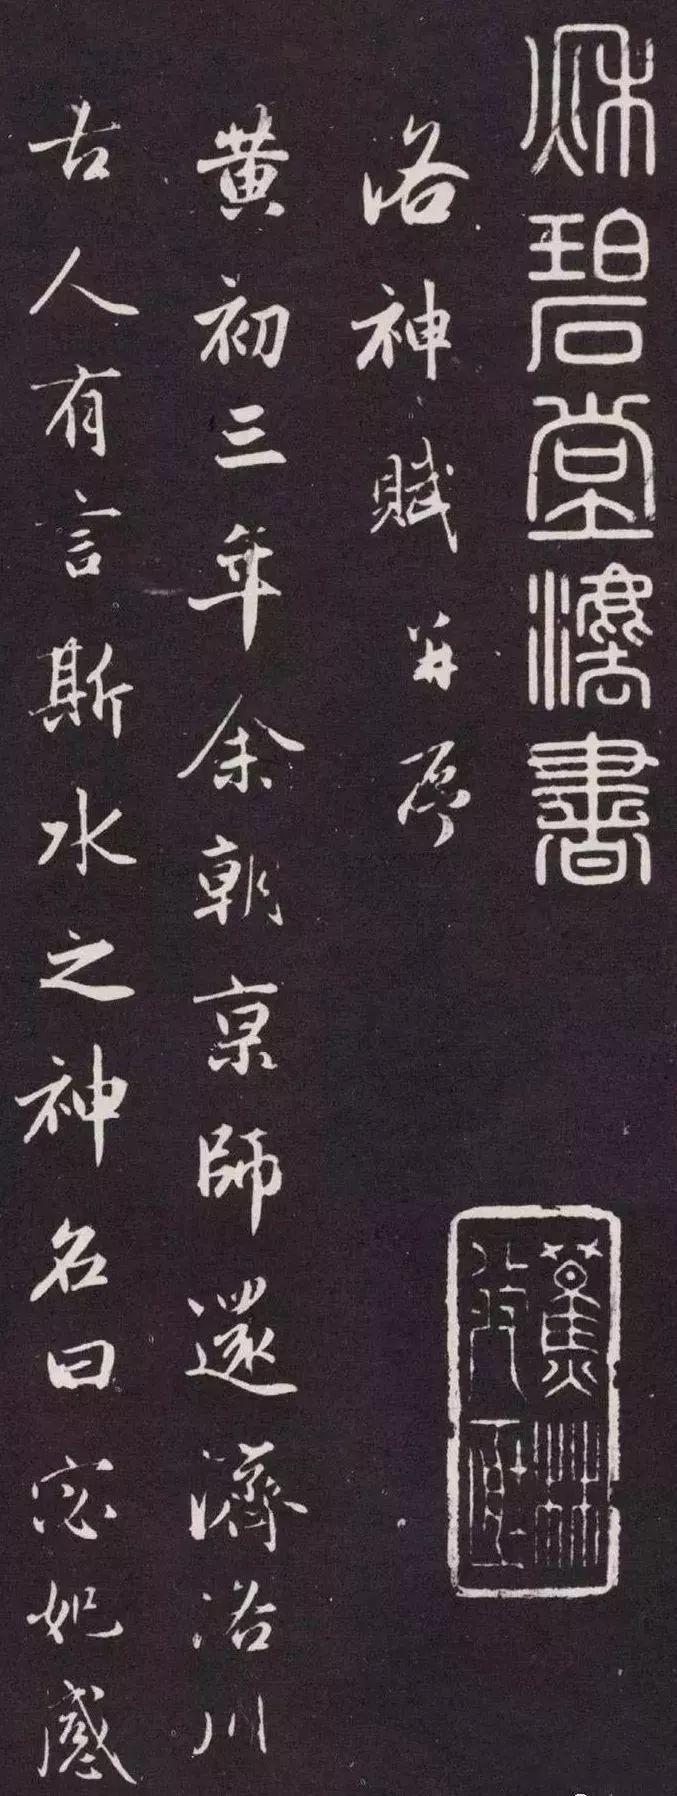 秋碧堂法書
洛神賦并序
黄初三年余朝京師還濟洛川
古人有言斯水之神名曰宓妃感
蕉林